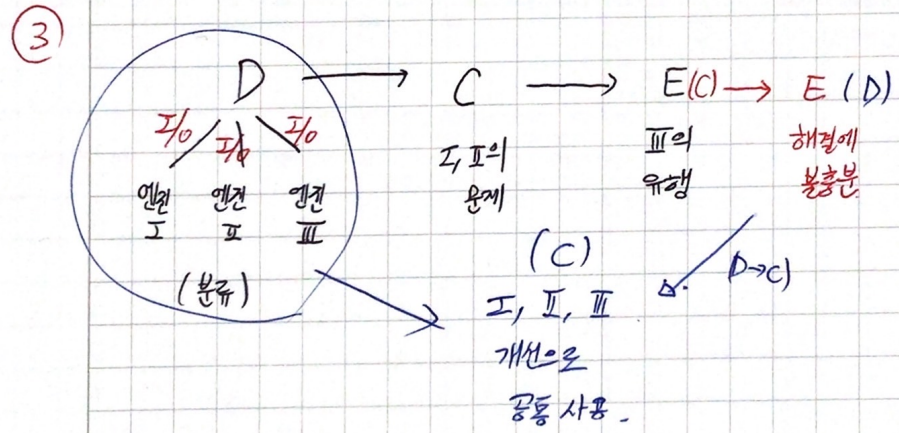 ③
D → C → E(C) → E (D)
I/O I/O I/O
엔진 I 엔진 II 엔진 III
(분류)
I, II의
문제
III의
유행
해결에
불충분
(D→C)
(C)
I, II, III
개선으로
공통 사용.